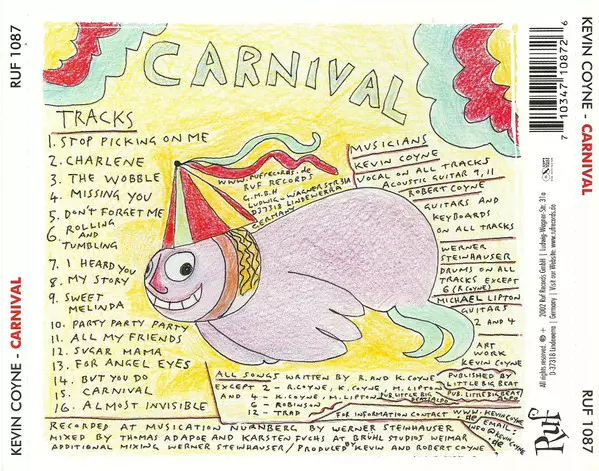 KEVIN COYNE - CARNIVAL
RUF 1087
CARNIVAL
TRACKS
1. STOP PICKING ON ME
2. CHARLENE
3. THE WOBBLE
4. MISSING YOU
5. DON'T FORGET ME
6. ROLLING
AND
TUMBLING
7. I HEARD YOU
8. MY STORY
9. SWEET
MELINDA
10. PARTY PARTY PARTY
11. ALL MY FRIENDS
12. SUGAR MAMA
13. FOR ANGEL EYES
14. BUT YOU DO
15. CARNIVAL
16. ALMOST INVISIBLE
WWW.RUFRECORDS.de
RUF RECORDS
G.M.B.H
LUDWIG-WAGNER STR 31A
D37318 LINDEWERRA
GERMANY
MUSICIANS
KEVIN COYNE
VOCAL ON ALL TRACKS
ACOUSTIC GUITAR 9, 11
ROBERT COYNE
GUITARS
AND
KEYBOARDS
ON ALL TRACKS
WERNER
STEINHAUSER
DRUMS ON ALL
TRACKS EXCEPT
6 (R.COYNE)
MICHAEL LIPTON
GUITARS
2 AND 4
ART
WORK
KEVIN COYNE
ALL SONGS WRITTEN BY R. AND K. COYNE
EXCEPT 2 - R. COYNE, K. COYNE, M. LIPTON
AND 4 - K. COYNE, M. LIPTON
6 - ROBINSON
12 - TRAD
PUBLISHED BY
LITTLE BIG BEAT
FOR INFORMATION CONTACT WWW.KEVINCOYNE
.de / EMAIL -
INFO@KEVINCOYNE
.de
RECORDED AT MUSICATION NURNBERG BY WERNER STEINHAUSER
MIXED BY THOMAS ADAPOE AND KARSTEN FUCHS AT BRÜHL STUDIOS WEIMAR
ADDITIONAL MIXING WERNER STEINHAUSER / PRODUCED BY KEVIN AND ROBERT COYNE
7 10347 10872 6
All rights reserved. ℗ + © 2002 Ruf Records GmbH | Ludwig-Wagner-Str. 31a
D-37318 Lindewerra | Germany | Visit our Website: www.rufrecords.de
Ruf
KEVIN COYNE - CARNIVAL
RUF 1087